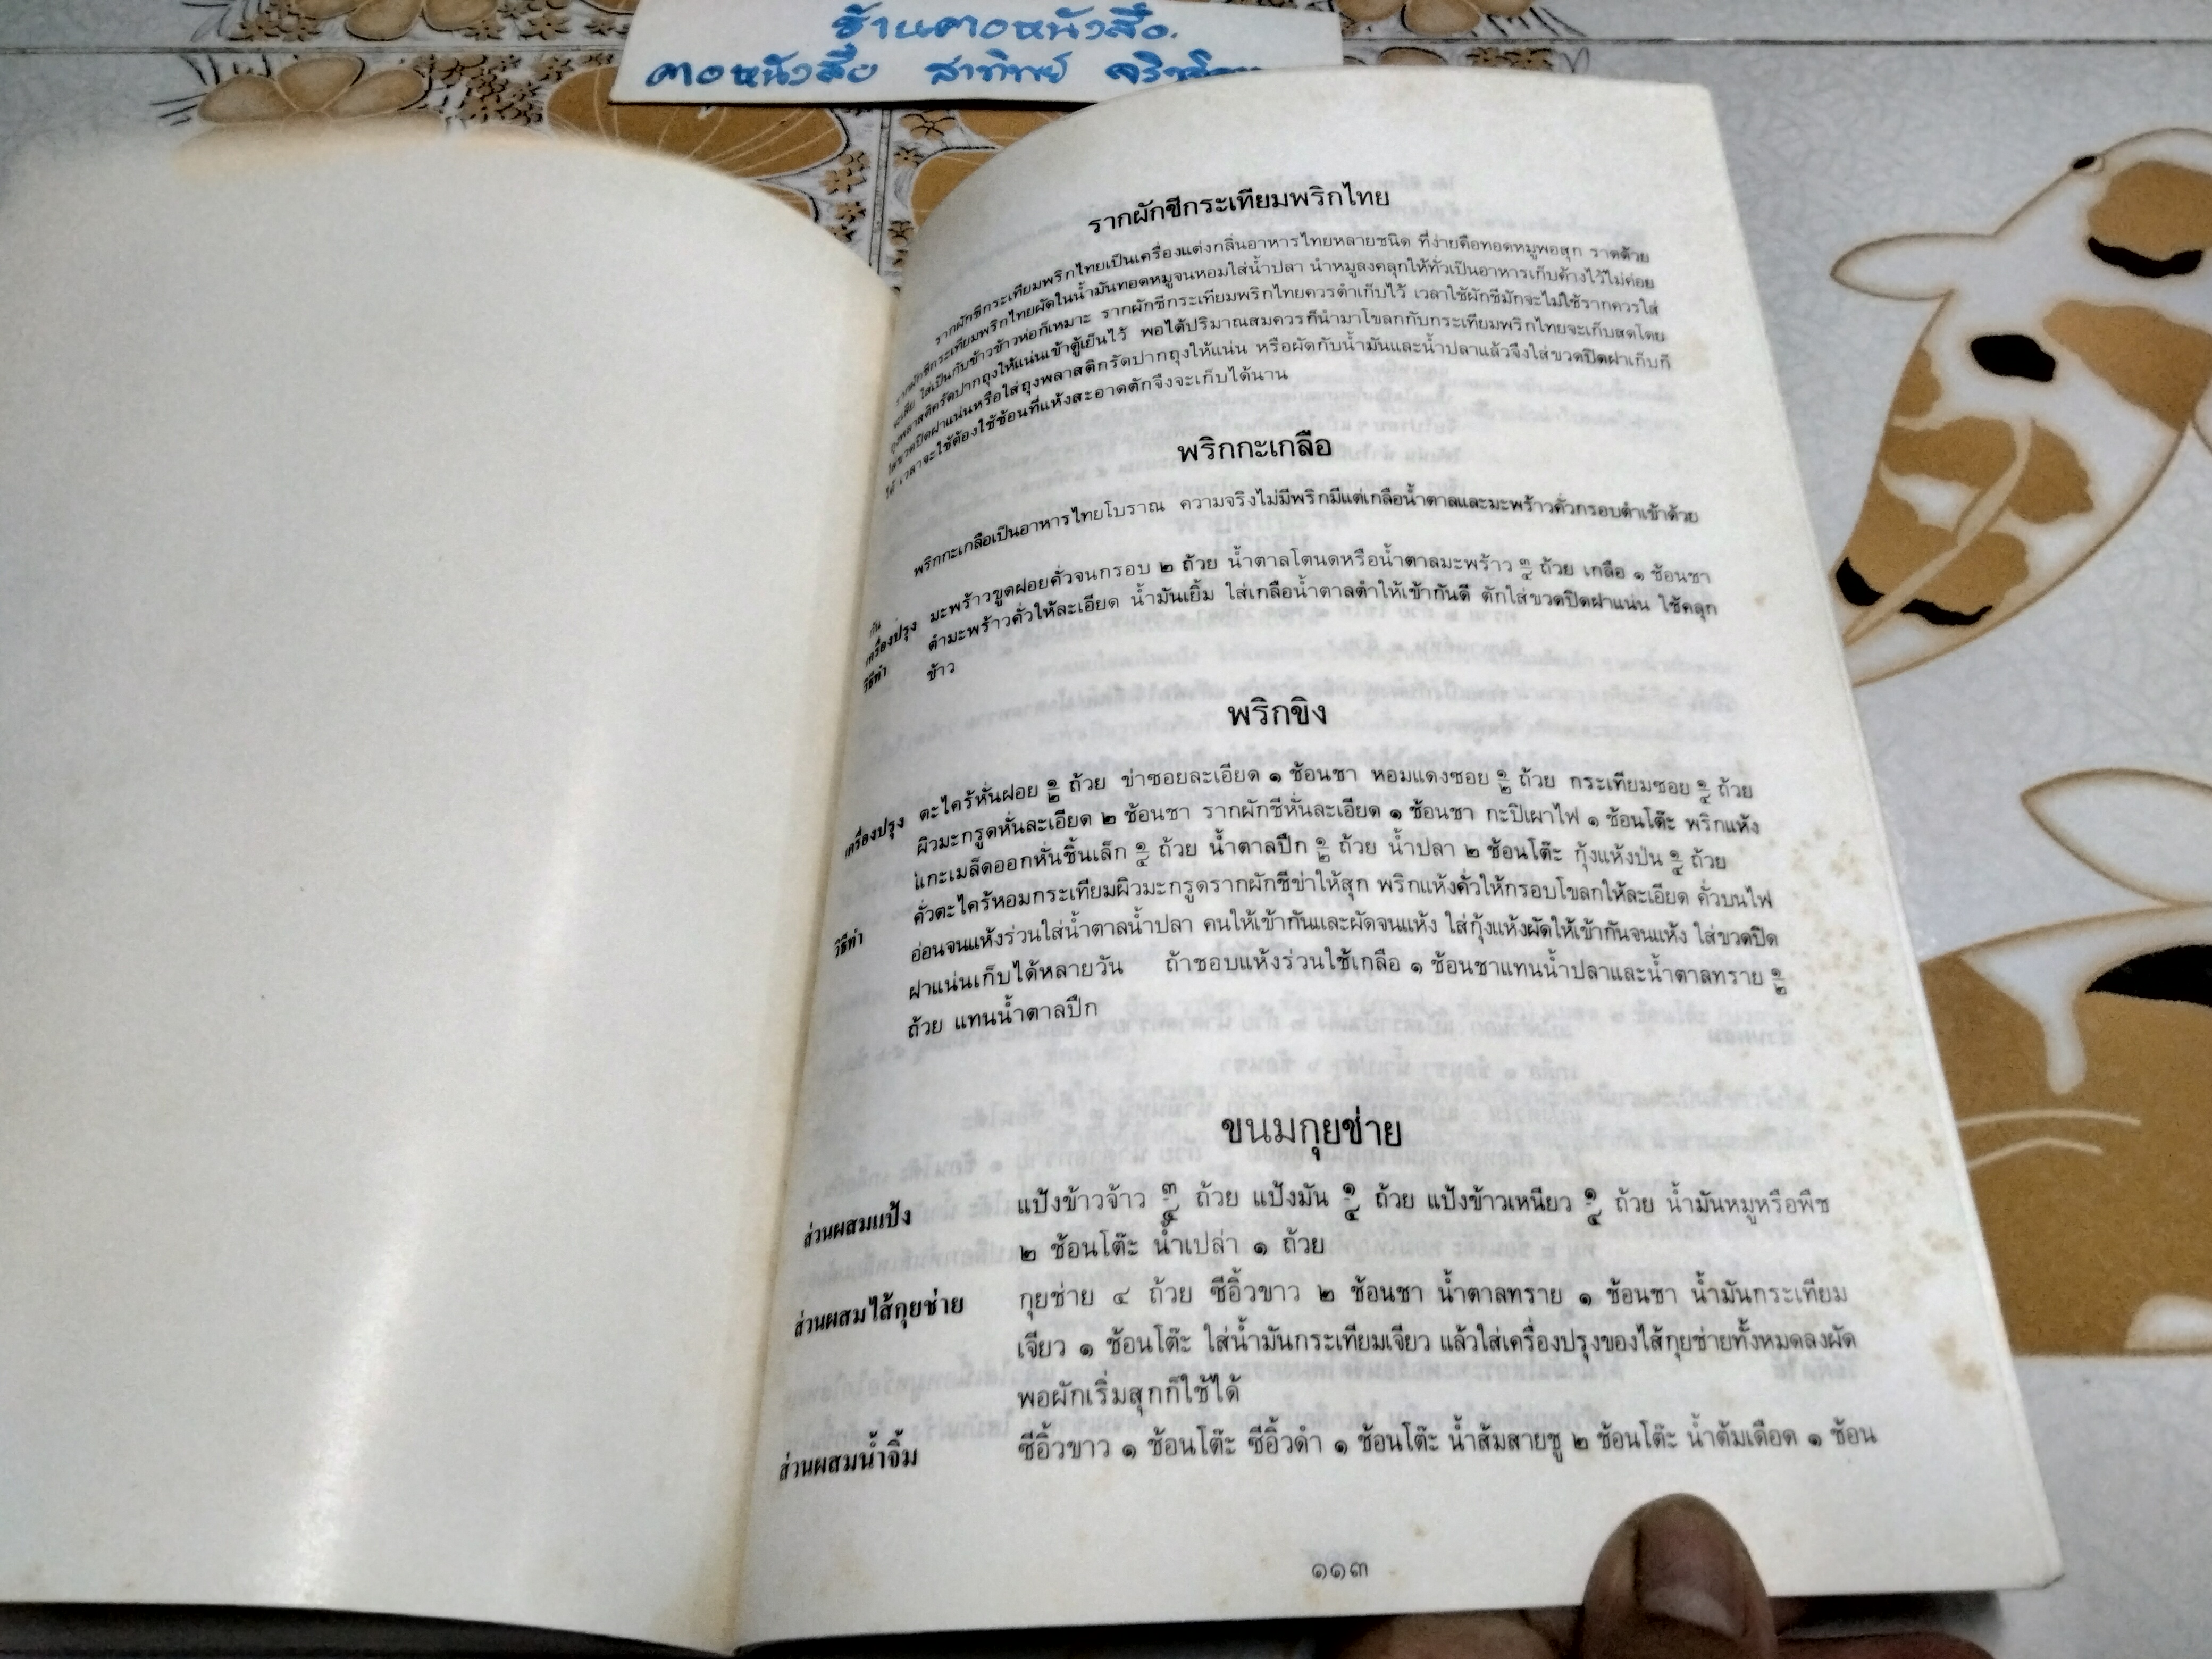 ร้านคอหนังสือ.
คอหนังสือ สาทิพย์
รากผักชีกระเทียมพริกไทย
รากผักชีกระเทียมพริกไทยเป็นเครื่องแต่งกลิ่นอาหารไทยหลายชนิด ที่ง่ายคือทอดหมูพอสุก ราดด้วย
รากผักชีกระเทียมพริกไทยผัดในน้ำมันทอดหมูจนหอมใส่น้ำปลา นำหมูลงคลุกให้ทั่วเป็นอาหารเก็บค้างไว้ไม่ค่อย
จะเสีย ใส่เป็นกับข้าวข้าวห่อก็เหมาะ รากผักชีกระเทียมพริกไทยควรตำเก็บไว้ เวลาใช้ผักชีมักจะไม่ใช้รากควรใส่
ถุงพลาสติครัดปากถุงให้แน่นเข้าตู้เย็นไว้ พอได้ปริมาณสมควรก็นำมาโขลกกับกระเทียมพริกไทยจะเก็บสดโดย
ใส่ขวดปิดฝาแน่นหรือใส่ถุงพลาสติกรัดปากถุงให้แน่น หรือผัดกับน้ำมันและน้ำปลาแล้วจึงใส่ขวดปิดฝาเก็บก็
ได้ เวลาจะใช้ต้องใช้ช้อนที่แห้งสะอาดตักจึงจะเก็บได้นาน
พริกกะเกลือ
พริกกะเกลือเป็นอาหารไทยโบราณ ความจริงไม่มีพริกมีแต่เกลือน้ำตาลและมะพร้าวคั่วกรอบตำเข้าด้วย
กัน
เครื่องปรุง มะพร้าวขูดฝอยคั่วจนกรอบ ๒ ถ้วย น้ำตาลโตนดหรือน้ำตาลมะพร้าว ๓/๔ ถ้วย เกลือ ๑ ช้อนชา
วิธีทำ ตำมะพร้าวคั่วให้ละเอียด น้ำมันเยิ้ม ใส่เกลือน้ำตาลตำให้เข้ากันดี ตักใส่ขวดปิดฝาแน่น ใช้คลุก
ข้าว
พริกขิง
เครื่องปรุง ตะไคร้หั่นฝอย ๑/๒ ถ้วย ข่าซอยละเอียด ๑ ช้อนชา หอมแดงซอย ๑/๒ ถ้วย กระเทียมซอย ๑/๔ ถ้วย
ผิวมะกรูดหั่นละเอียด ๒ ช้อนชา รากผักชีหั่นละเอียด ๑ ช้อนชา กะปิเผาไฟ ๑ ช้อนโต๊ะ พริกแห้ง
แกะเมล็ดออกหั่นชิ้นเล็ก ๑/๔ ถ้วย น้ำตาลปึก ๑/๒ ถ้วย น้ำปลา ๒ ช้อนโต๊ะ กุ้งแห้งป่น ๑/๔ ถ้วย
วิธีทำ คั่วตะไคร้หอมกระเทียมผิวมะกรูดรากผักชีข่าให้สุก พริกแห้งคั่วให้กรอบโขลกให้ละเอียด คั่วบนไฟ
อ่อนจนแห้งร่วนใส่น้ำตาลน้ำปลา คนให้เข้ากันและผัดจนแห้ง ใส่กุ้งแห้งผัดให้เข้ากันจนแห้ง ใส่ขวดปิด
ฝาแน่นเก็บได้หลายวัน ถ้าชอบแห้งร่วนใช้เกลือ ๑ ช้อนชาแทนน้ำปลาและน้ำตาลทราย ๑/๒
ถ้วย แทนน้ำตาลปึก
ขนมกุยช่าย
ส่วนผสมแป้ง แป้งข้าวจ้าว ๓/๔ ถ้วย แป้งมัน ๑/๔ ถ้วย แป้งข้าวเหนียว ๑/๔ ถ้วย น้ำมันหมูหรือพืช
๒ ช้อนโต๊ะ น้ำเปล่า ๑ ถ้วย
ส่วนผสมไส้กุยช่าย กุยช่าย ๔ ถ้วย ซีอิ้วขาว ๒ ช้อนชา น้ำตาลทราย ๑ ช้อนชา น้ำมันกระเทียม
เจียว ๑ ช้อนโต๊ะ ใส่น้ำมันกระเทียมเจียว แล้วใส่เครื่องปรุงของไส้กุยช่ายทั้งหมดลงผัด
พอผักเริ่มสุกก็ใช้ได้
ส่วนผสมน้ำจิ้ม ซีอิ้วขาว ๑ ช้อนโต๊ะ ซีอิ้วดำ ๑ ช้อนโต๊ะ น้ำส้มสายชู ๒ ช้อนโต๊ะ น้ำต้มเดือด ๑ ช้อน
๑๑๓